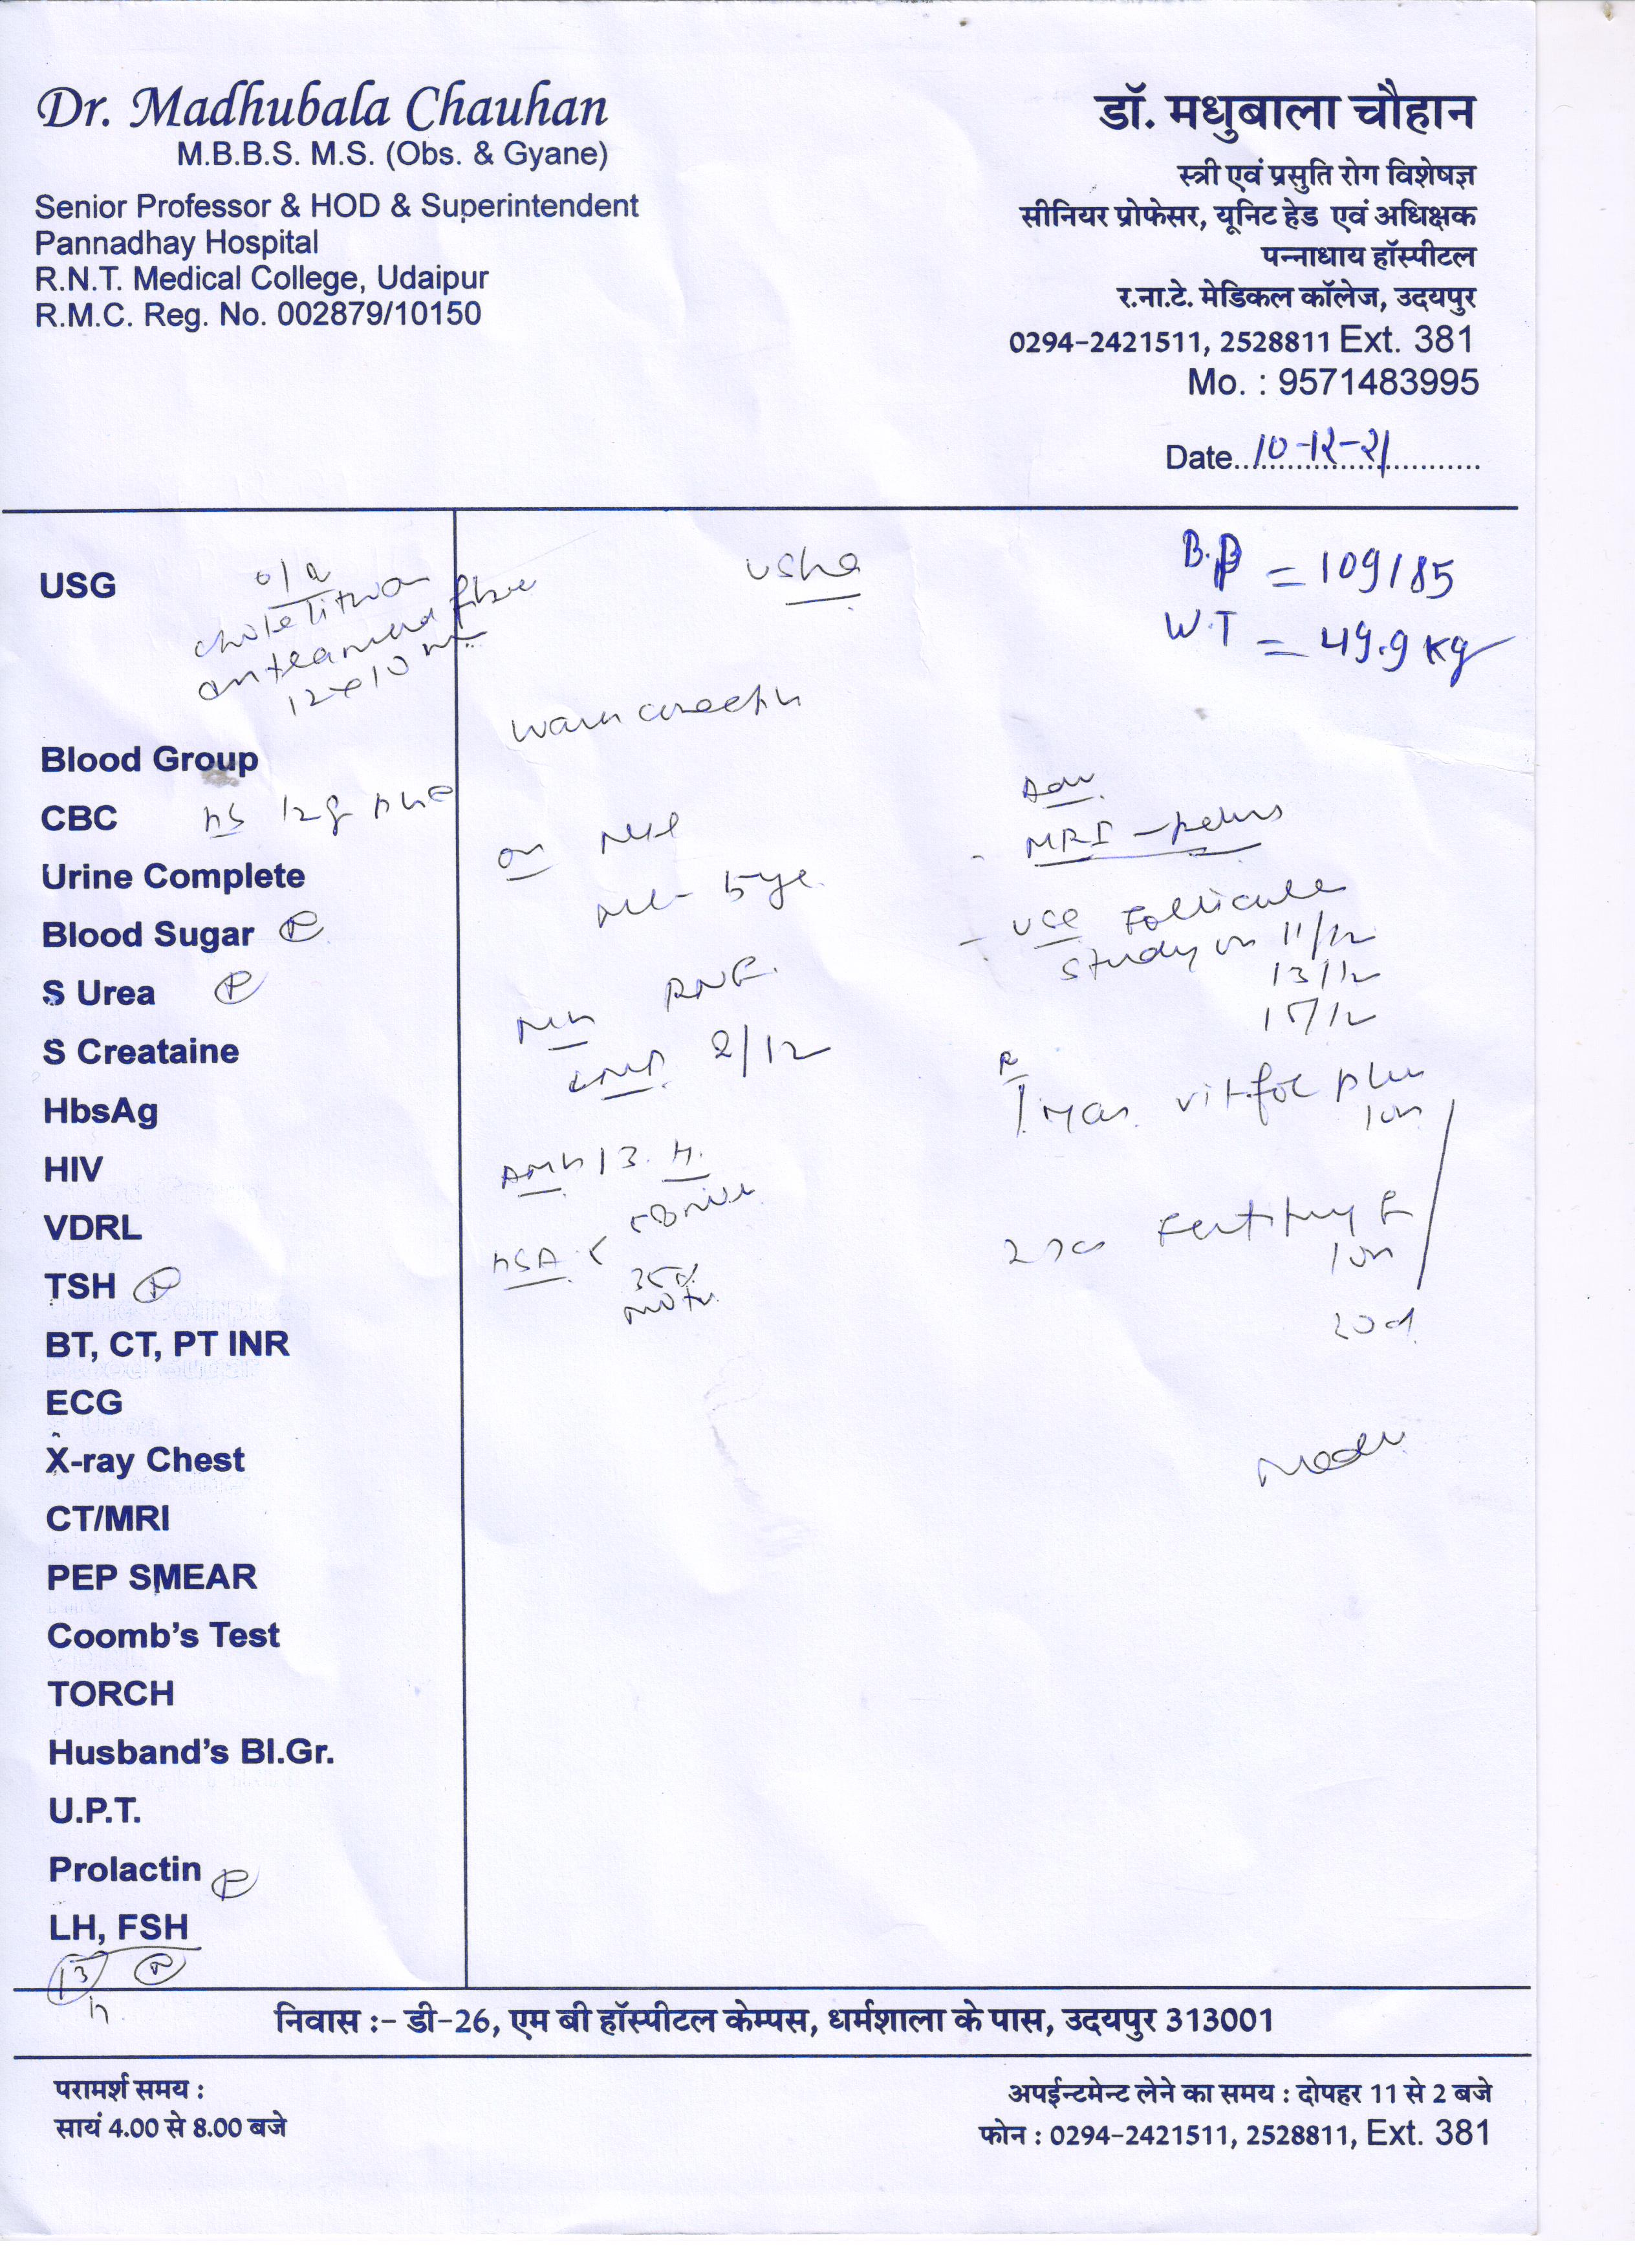 Dr. Madhubala Chauhan
M.B.B.S. M.S. (Obs. & Gyane)
Senior Professor & HOD & Superintendent
Pannadhay Hospital
R.N.T. Medical College, Udaipur
R.M.C. Reg. No. 002879/10150
डॉ. मधुबाला चौहान
स्त्री एवं प्रसुति रोग विशेषज्ञ
सीनियर प्रोफेसर, यूनिट हेड एवं अधिक्षक
पन्नाधाय हॉस्पीटल
र.ना.टे. मेडिकल कॉलेज, उदयपुर
0294-2421511, 2528811 Ext. 381
Mo. : 9571483995
Date 10-12-21
B.P = 109/85
W.T = 49.9 kg
Usha
USG
12x10
Blood Group
CBC
Urine Complete
Blood Sugar
S Urea
S Creataine
HbsAg
HIV
VDRL
TSH
BT, CT, PT INR
ECG
X-ray Chest
CT/MRI
PEP SMEAR
Coomb's Test
TORCH
Husband's Bl.Gr.
U.P.T.
Prolactin
LH, FSH
13
LMP 2/12
AMH 13.
Adv
- MRI - pelvis
- Follicular
study on 11/12
13/12
15/12
20d
निवास :- डी-26, एम बी हॉस्पीटल केम्पस, धर्मशाला के पास, उदयपुर 313001
परामर्श समय :
सायं 4.00 से 8.00 बजे
अपईन्टमेन्ट लेने का समय : दोपहर 11 से 2 बजे
फोन : 0294-2421511, 2528811, Ext. 381